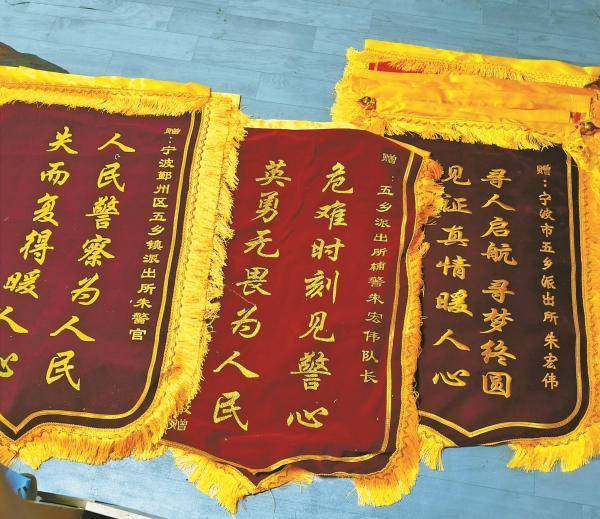 赠:宁波鄞州区五乡镇派出所朱警官
人民警察为人民
失而复得暖人心
赠:五乡派出所辅警朱宏伟队长
危难时刻见警心
英勇无畏为人民
敬赠
赠:宁波市五乡派出所 朱宏伟
寻人启航 寻梦终圆
见证真情暖人心